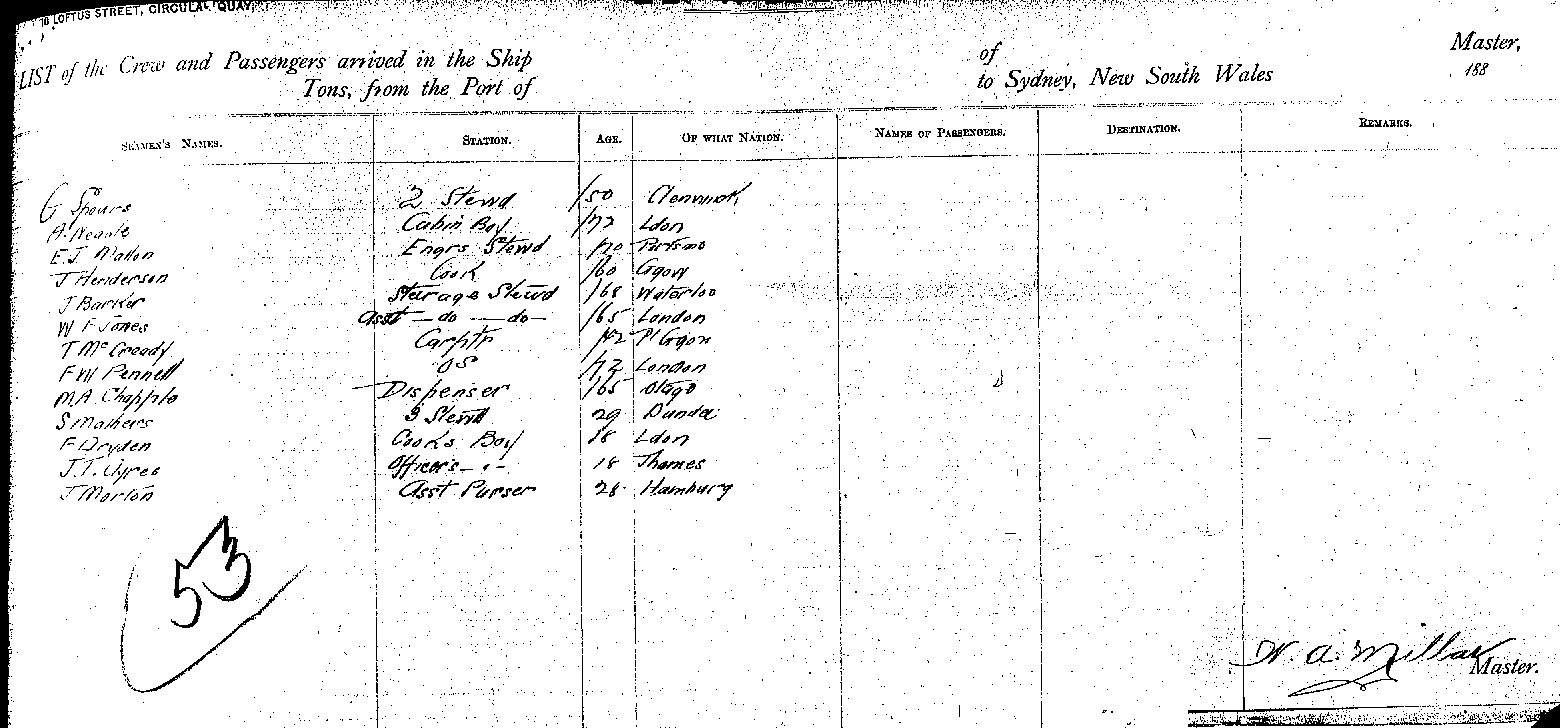 16 LOFTUS STREET, CIRCULAR QUAY,
LIST of the Crew and Passengers arrived in the Ship of Master,
Tons, from the Port of to Sydney, New South Wales 188
SEAMEN'S NAMES. STATION. AGE. OF WHAT NATION. NAMES OF PASSENGERS. DESTINATION. REMARKS.
G Spours 2 Stewd /50
A. Neale Cabin Boy /72 Ldon
E.J. Mallon Engrs Stewd /70
J Henderson Cook /60 Ggow
J Barker Sterage Stewd /68 Waterloo
W F Jones Asst — do — do — /65 London
T McCready Carptr /42 Pt Ggon
F W Pennell OS /72 London
M.A. Chapple Dispenser /65 Otago
S Mathers 3 Stewd 29 Dundee
F Dryden Cooks Boy 18 Ldon
J.T. Ayres Officers - " - 18 Thames
J Morton Asst Purser 28 Hamburg
53
W. A. Millar
Master.